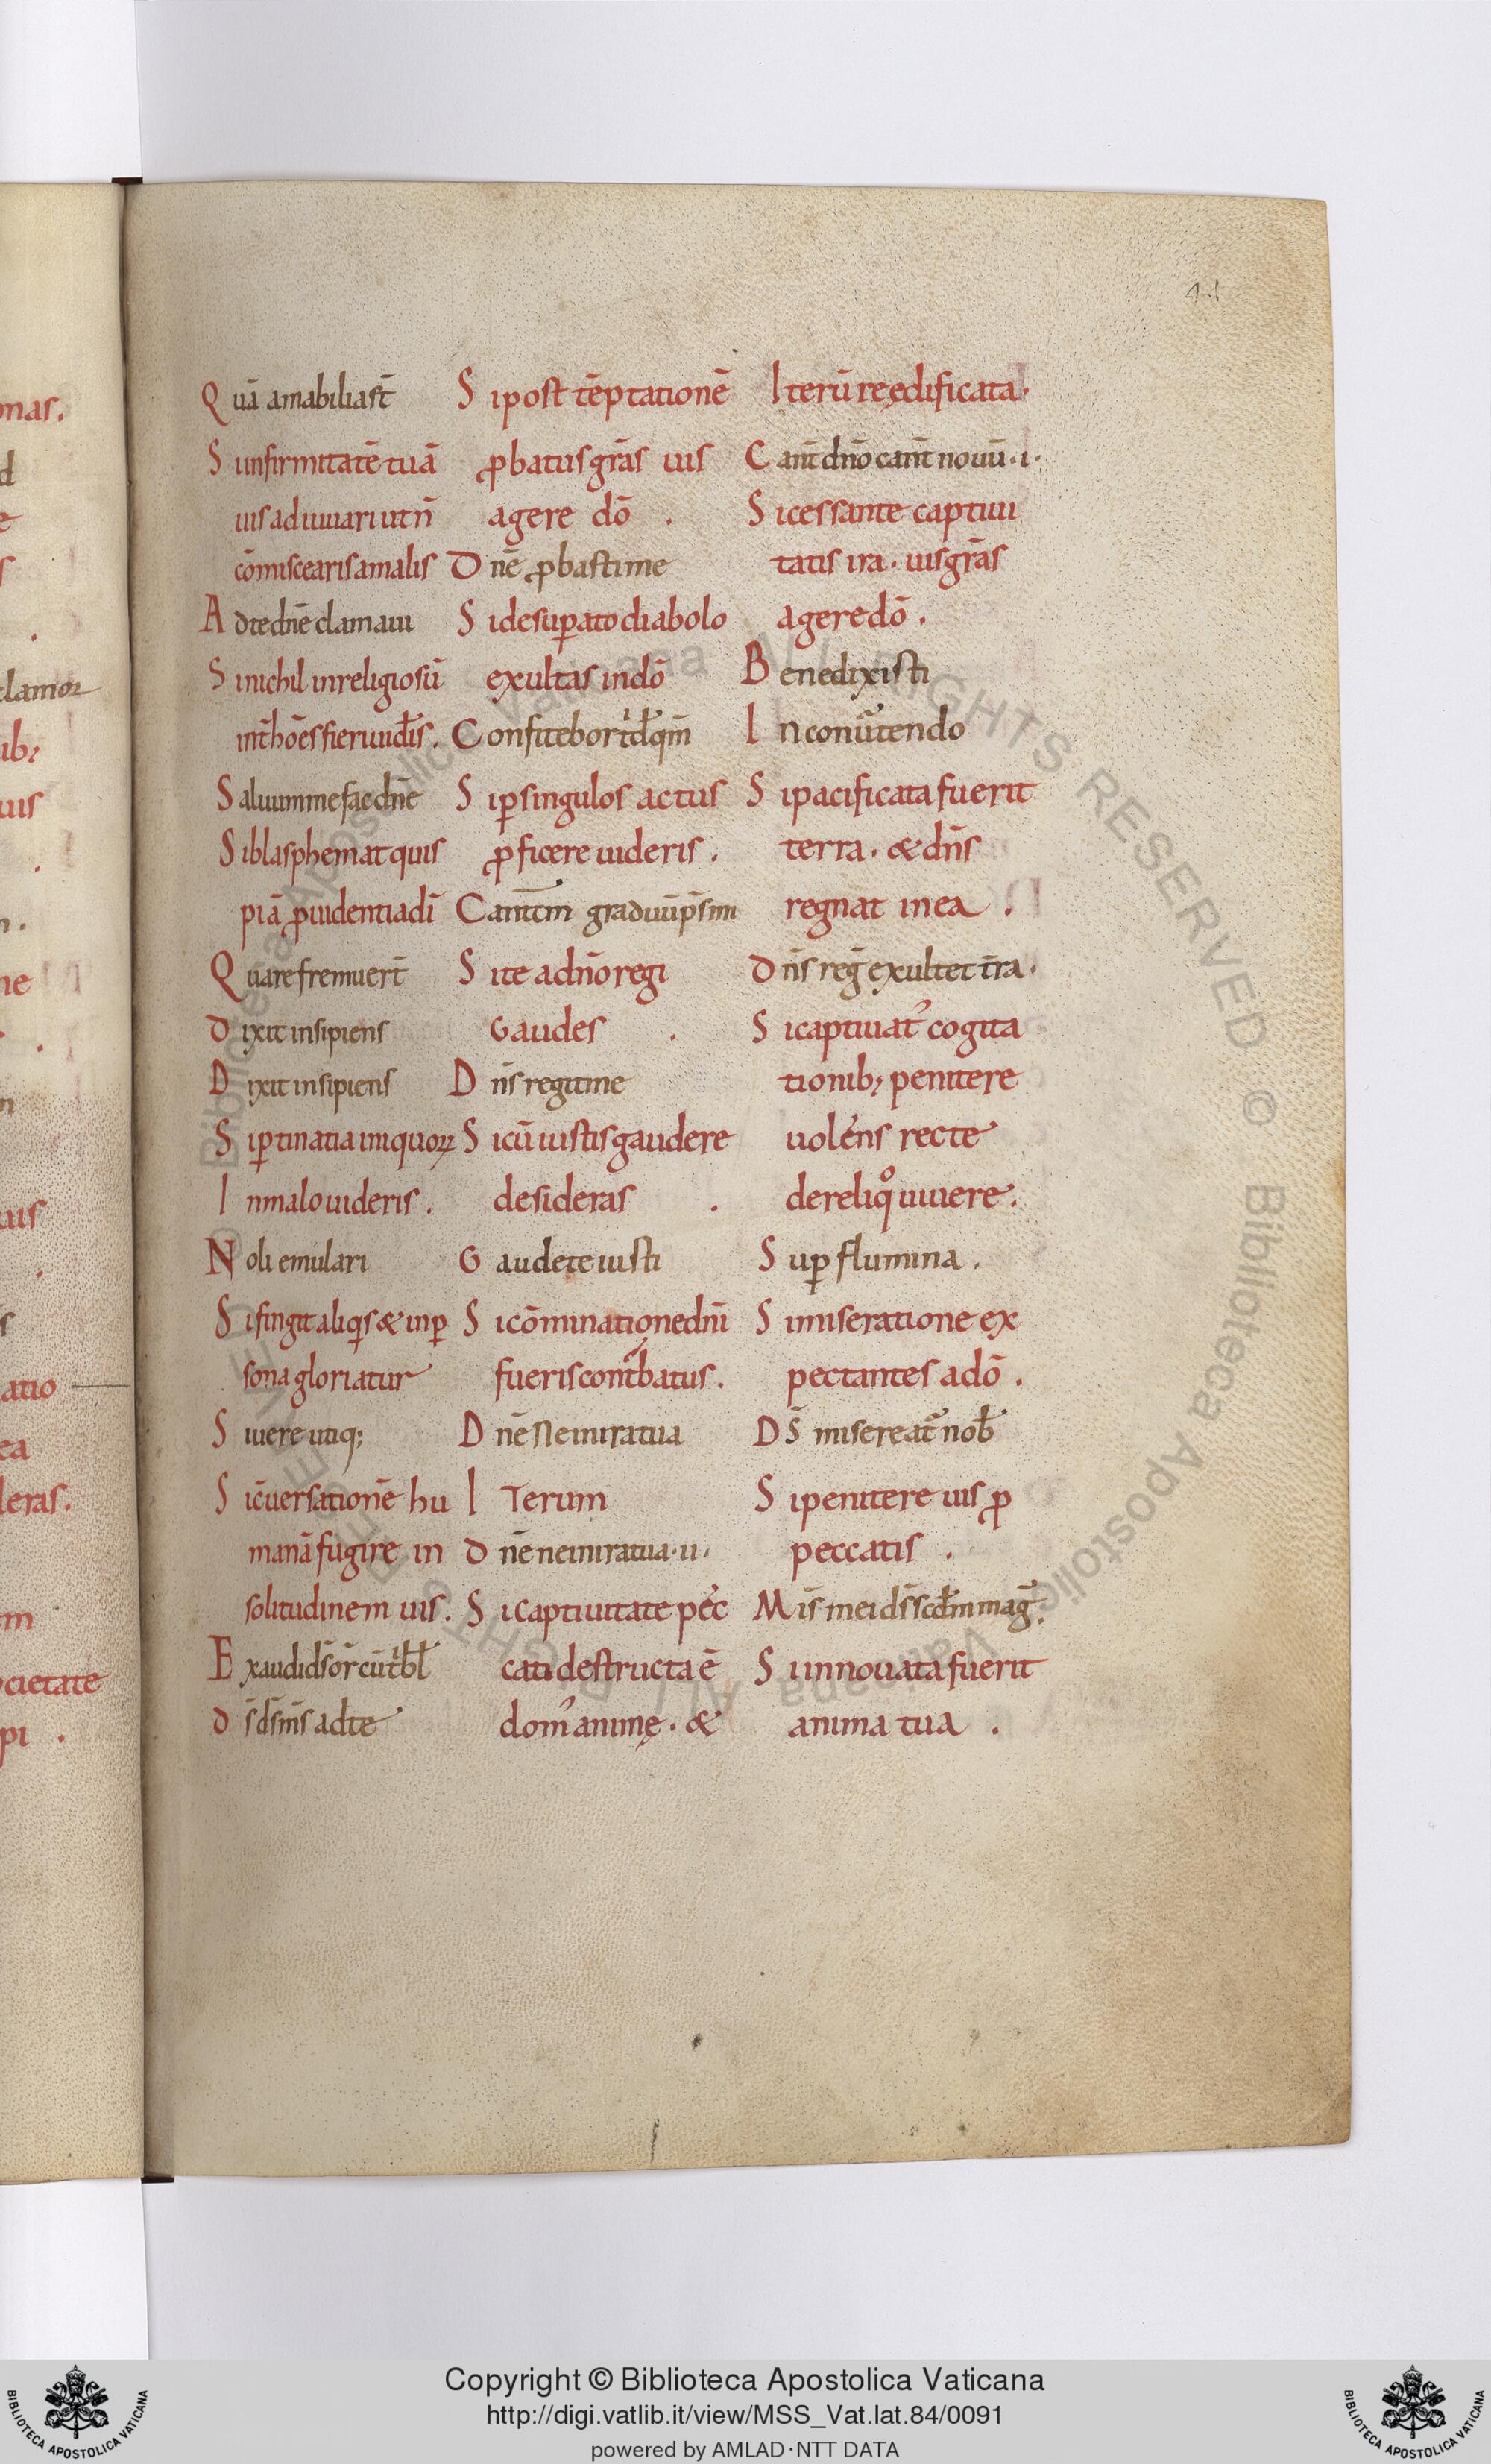 44
Quā amabilia sт̄
Si infirmitatē tuā
uis adiuuari ut ñ
cōmiscearis a malis
Ad te dn̄e clamaui
Si nichil in religiosū
int̄ hōēs fieri uid̄is.
Saluum me fac dn̄e
Si blasphemat quis
piā ꝓuidentiā dī
Quare fremuer̄t
Dixit insipiens
Dixit insipiens
Si ꝑtinatia iniquoꝝ
In malo uideris.
Noli emulari
Si fingit aliqͥs & in ꝑ
sona gloriatur
Si uere utiq;
Si c̄uersationē hu
manā fugire in
solitudinem uis.
Exaudi ds̄ or̄ cū tͥbł
Ds̄ ds̄ ms̄ ad te
Si post tēptationē
ꝓbatus grās uis
agere dō .
Dn̄e ꝓbasti me
Si de suꝑato diabolo
exultas in dō
Confitebor tͥ dn̄e qm̄
Si ꝑ singulos actus
ꝓficere uideris.
Cant̄cm graduū pͥsim
Si te a dn̄o regi
Gaudes .
Dn̄s regit me
Si cū iustis gaudere
desideras .
Gaudete iusti
Si cōminatione dn̄i
fueris cont̄batus.
Dn̄e ne in ira tua
Iterum
Dn̄e ne in ira tua · ii ·
Si captiuitate pec
cati destructa ē
domꝰ animę · &
Iterū reedificata ·
Cant̄ dn̄o cant̄ nouū · i ·
Si cessante captiui
tatis ira · uis grās
agere dō .
Benedixisti
In conu̅tendo
Si pacificata fuerit
terra · & dn̄s
regnat in ea .
Dn̄s reg̅ exultet t̄ra ·
Si captiuatꝰ cogita
tionib; penitere
uolens recte
dereliqͦ uiuere.
Suꝑ flumina .
Si miseratione ex
pectantes a dō .
Ds̄ misereat̄ nob̄
Si penitere uis ꝓ
peccatis .
Mis̄ mei ds̄ scd̄m mag̅ .
Si innouata fuerit
anima tua .
Copyright © Biblioteca Apostolica Vaticana
http://digi.vatlib.it/view/MSS_Vat.lat.84/0091
powered by AMLAD·NTT DATA